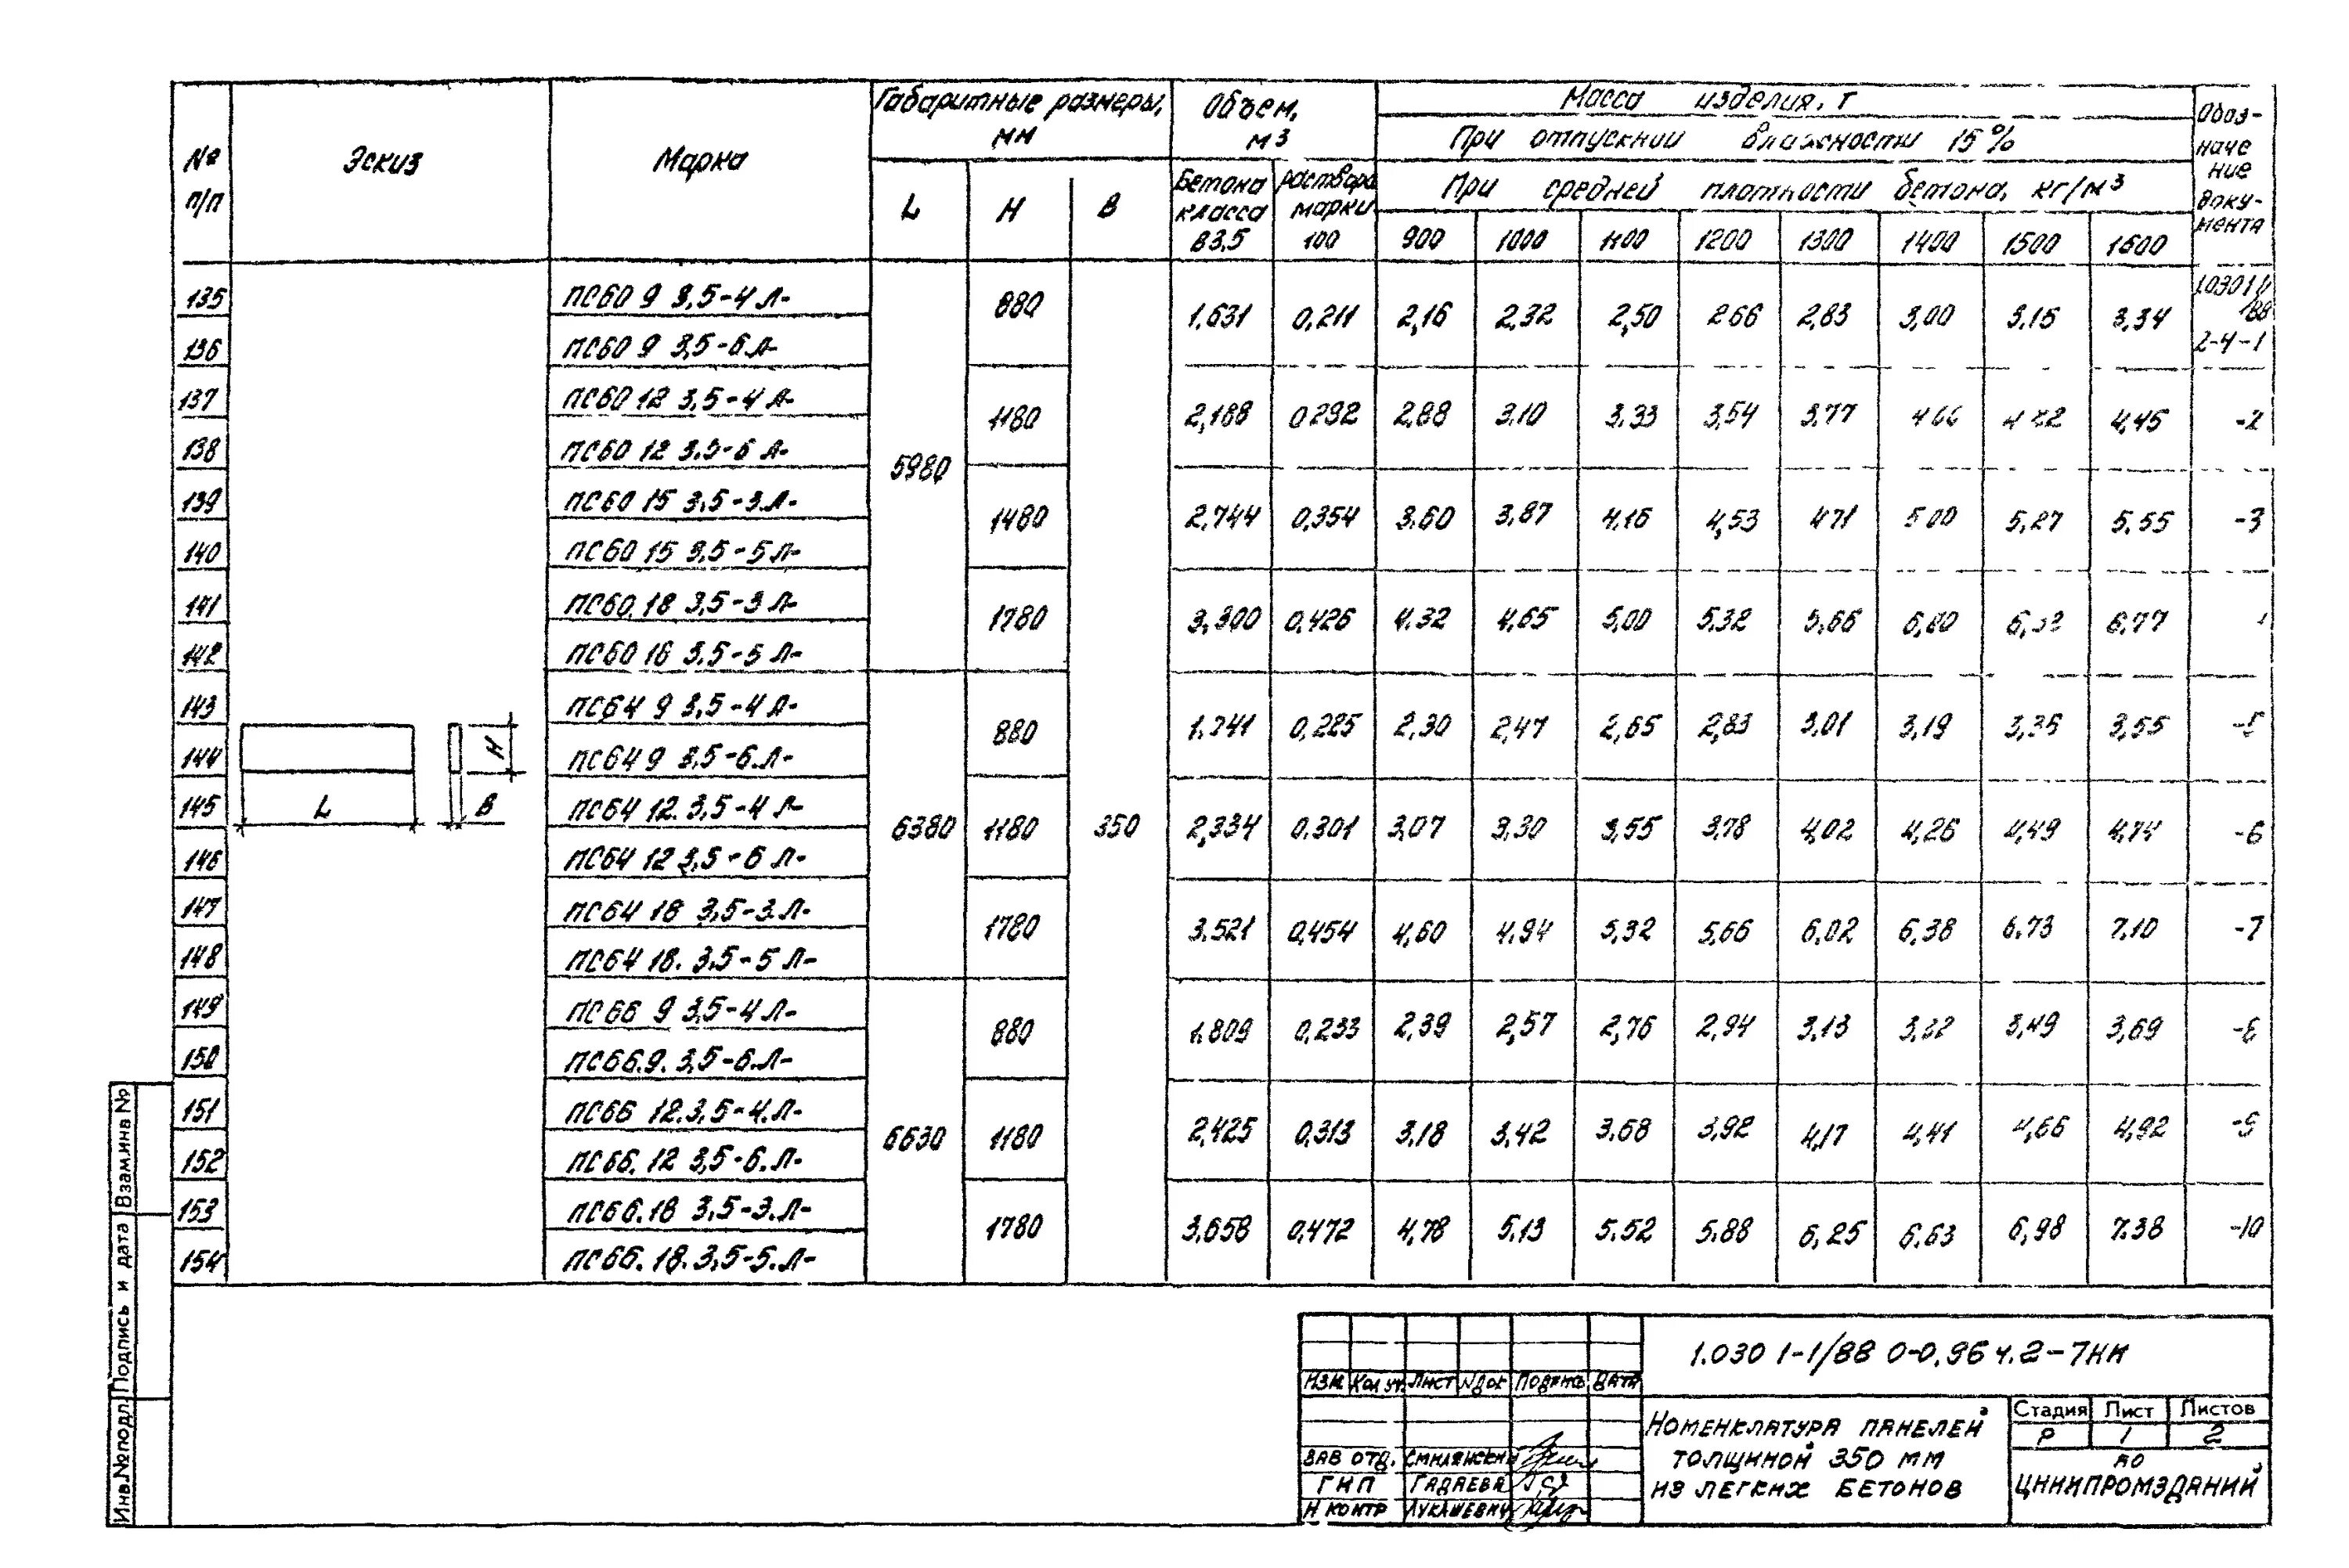 № п/п
Эскиз
Марка
Габаритные размеры, мм
L
H
B
Объем, м3
Бетона класса В3,5
раствора марки 100
Масса изделия, т
При отпускной влажности 15%
При средней плотности бетона, кг/м3
900 1000 1100 1200 1300 1400 1500 1600
Обоз-
наче
ние
доку-
мента
135 ПС60 9 3,5-4 Л- 5980 880 1,631 0,211 2,16 2,32 2,50 2 66 2,83 3,00 3,15 3,34 2-4-1
136 ПС60 9 3,5-6 Л-
137 ПС60 12 3,5-4 Л- 1180 2,188 0,292 2,88 3,10 3,33 3,54 3,77 4,45 -2
138 ПС60 12 3,5-6 Л-
139 ПС60 15 3,5-3.Л- 1480 2,744 0,354 3,60 3,87 4,16 4,53 4 71 5 00 5,27 5,55 -3
140 ПС60 15 3,5-5 Л-
141 ПС60. 18 3,5-3 Л- 1780 3,300 0,426 4.32 4,65 5,00 5,32 5,66 6,00 6,77
142 ПС60 18 3,5-5 Л-
143 ПС64 9 3,5-4 Л- 6380 880 0,225 2,30 2,47 2,65 2,83 3,01 3,19 3,36 3,55 -5
144 ПС64 9 3,5-6.Л-
145 ПС64 12. 3,5-4 Л- 1180 350 2,334 0.301 3,07 3,30 3,55 3,78 4,02 4,26 4,49 4,74 -6
146 ПС64 12 3,5-6 Л-
147 ПС64 18 3,5-3.Л- 1780 3.521 0,454 4,60 4.94 5,32 5,66 6,02 6,38 6.73 7.10 -7
148 ПС64 18. 3,5-5 Л-
149 ПС66 9 3,5-4 Л- 6630 880 1.809 0,233 2,39 2,57 2,76 2,94 3,13 3,32 3,49 3,69 -8
150 ПС66.9. 3,5-6.Л-
151 ПС66 12.3,5-4.Л- 1180 2,425 0,313 3,18 3,42 3.68 3,92 4,17 4,41 4,66 4,92 -9
152 ПС66. 12 3,5-6. Л-
153 ПС66.18 3,5-3.Л- 1780 3,658 0,472 4,78 5,13 5.52 5.88 6,25 6.63 6,98 7.38 -10
154 ПС66. 18. 3,5-5. Л-
H
L
B
Взам.инв №
Подпись и дата
Инв.№подл.
1.030 1-1/88 0-0,96 ч.2-7НИ
Изм Кол уч. Лист №док Подпись Дата
Зав отд. Смилянский
ГИП Гадаева
Н контр Лукашевич
Номенклатура панелей
толщиной 350 мм
из легких бетонов
Стадия Лист Листов
Р 1 2
АО
ЦНИИПРОМЗДАНИЙ